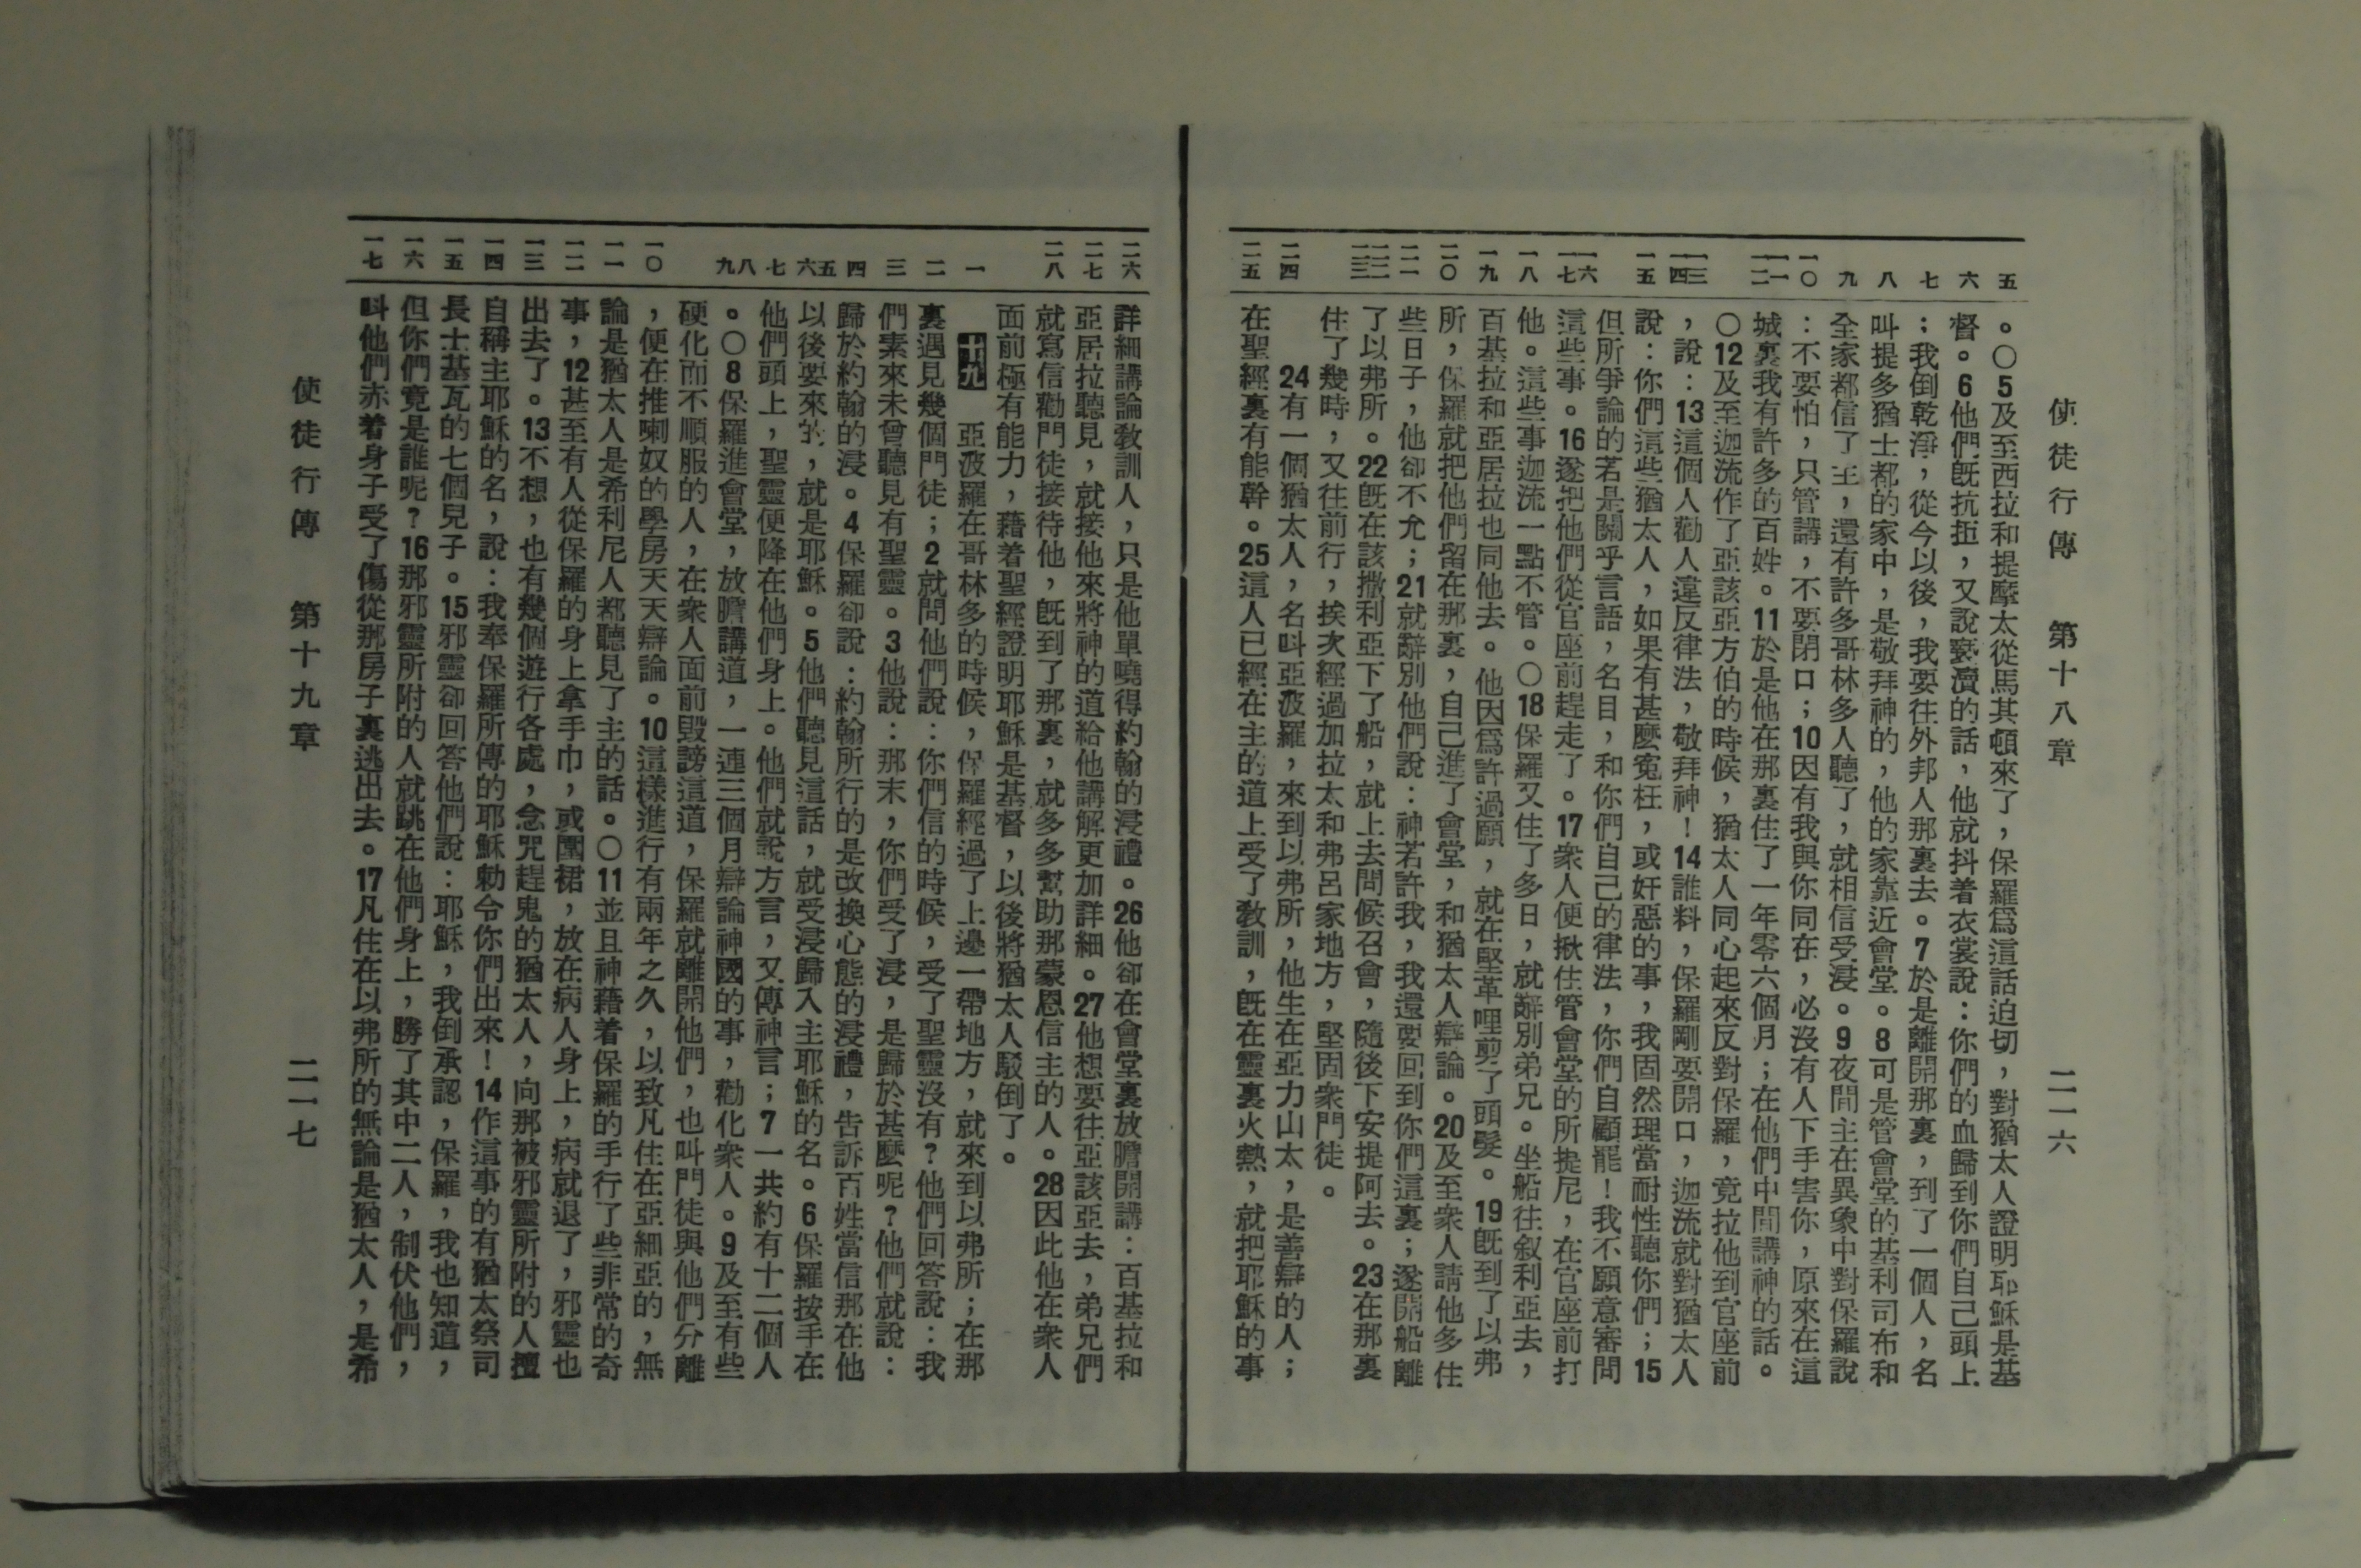 使徒行傳　第十八章　二一六
五
六
七
八
九
一〇
一一 一二
一三 一四
一五
一六 一七
一八
一九
二〇
二一
二二 二三
二四
二五
。〇5及至西拉和提摩太從馬其頓來了，保羅爲這話迫切，對猶太人證明耶穌是基
督。6他們旣抗拒，又說褻瀆的話，他就抖着衣裳說：你們的血歸到你們自己頭上
；我倒乾淨，從今以後，我要往外邦人那裏去。7於是離開那裏，到了一個人，名
叫提多猶士都的家中，是敬拜神的，他的家靠近會堂。8可是管會堂的基利司布和
全家都信了主，還有許多哥林多人聽了，就相信受浸。9夜間主在異象中對保羅說
：不要怕，只管講，不要閉口；10因有我與你同在，必沒有人下手害你，原來在這
城裏我有許多的百姓。11於是他在那裏住了一年零六個月；在他們中間講神的話。
〇12及至迦流作了亞該亞方伯的時候，猶太人同心起來反對保羅，竟拉他到官座前
，說：13這個人勸人違反律法，敬拜神！14誰料，保羅剛要開口，迦流就對猶太人
說：你們這些猶太人，如果有甚麼寃枉，或奸惡的事，我固然理當耐性聽你們；15
但所爭論的若是關乎言語，名目，和你們自己的律法，你們自顧罷！我不願意審問
這些事。16遂把他們從官座前趕走了。17衆人便揪住管會堂的所提尼，在官座前打
他。這些事迦流一點不管。〇18保羅又住了多日，就辭別弟兄。坐船往叙利亞去，
百基拉和亞居拉也同他去。他因爲許過願，就在堅革哩剪了頭髮。19旣到了以弗
所，保羅就把他們留在那裏，自己進了會堂，和猶太人辯論。20及至衆人請他多住
些日子，他卻不允；21就辭別他們說：神若許我，我還要回到你們這裏；遂開船離
了以弗所。22旣在該撒利亞下了船，就上去問候召會，隨後下安提阿去。23在那裏
住了幾時，又往前行，挨次經過加拉太和弗呂家地方，堅固衆門徒。
24有一個猶太人，名叫亞波羅，來到以弗所，他生在亞力山太，是善辯的人；
在聖經裏有能幹。25這人已經在主的道上受了敎訓，旣在靈裏火熱，就把耶穌的事
二六
二七
二八
一
二
三
四
五 六
七
八 九
一〇
一一
一二
一三
一四
一五
一六
一七
詳細講論敎訓人，只是他單曉得約翰的浸禮。26他卻在會堂裏放膽開講：百基拉和
亞居拉聽見，就接他來將神的道給他講解更加詳細。27他想要往亞該亞去，弟兄們
就寫信勸門徒接待他，旣到了那裏，就多多幫助那蒙恩信主的人。28因此他在衆人
面前極有能力，藉着聖經證明耶穌是基督，以後將猶太人駁倒了。
十九　亞波羅在哥林多的時候，保羅經過了上邊一帶地方，就來到以弗所；在那
裏遇見幾個門徒；2就問他們說：你們信的時候，受了聖靈沒有?他們回答說：我
們素來未曾聽見有聖靈。3他說：那末，你們受了浸，是歸於甚麼呢?他們就說：
歸於約翰的浸。4保羅卻說：約翰所行的是改換心態的浸禮，告訴百姓當信那在他
以後要來的，就是耶穌。5他們聽見這話，就受浸歸入主耶穌的名。6保羅按手在
他們頭上，聖靈便降在他們身上。他們就說方言，又傳神言；7一共約有十二個人
。〇8保羅進會堂，放膽講道，一連三個月辯論神國的事，勸化衆人。9及至有些
硬化而不順服的人，在衆人面前毀謗這道，保羅就離開他們，也叫門徒與他們分離
，便在推喇奴的學房天天辯論。10這樣進行有兩年之久，以致凡住在亞細亞的，無
論是猶太人是希利尼人都聽見了主的話。〇11並且神藉着保羅的手行了些非常的奇
事，12甚至有人從保羅的身上拿手巾，或圍裙，放在病人身上，病就退了，邪靈也
出去了。13不想，也有幾個遊行各處，念咒趕鬼的猶太人，向那被邪靈所附的人擅
自稱主耶穌的名，說：我奉保羅所傳的耶穌勅令你們出來！14作這事的有猶太祭司
長士基瓦的七個兒子。15邪靈卻回答他們說：耶穌，我倒承認，保羅，我也知道，
但你們竟是誰呢?16那邪靈所附的人就跳在他們身上，勝了其中二人，制伏他們，
叫他們赤着身子受了傷從那房子裏逃出去。17凡住在以弗所的無論是猶太人，是希
使徒行傳　第十九章　二一七